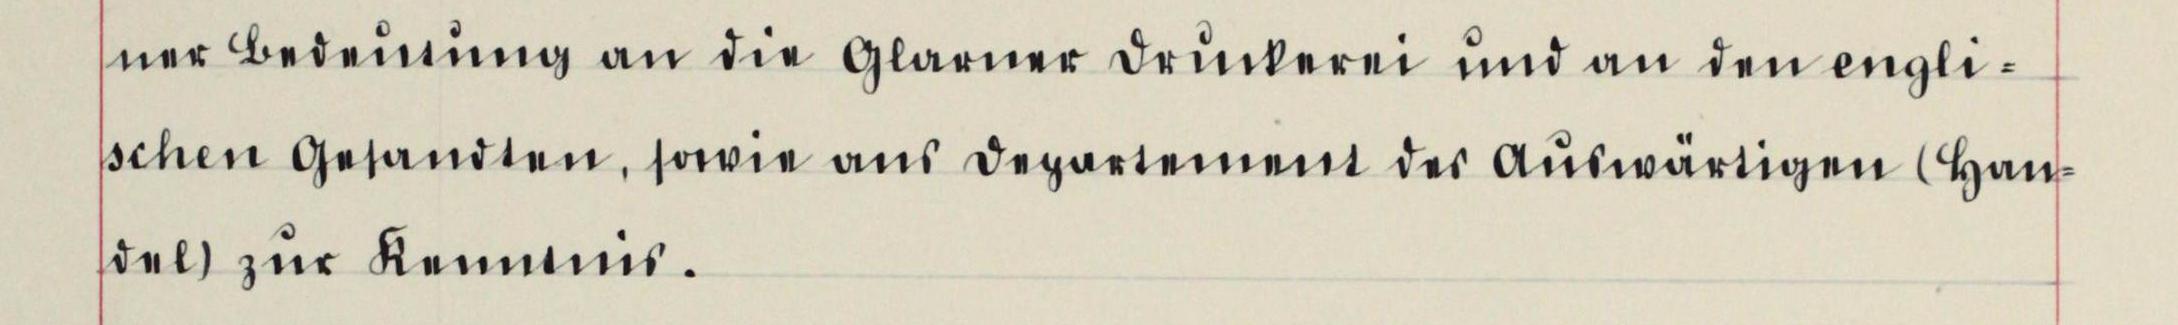 ner Bedeutung an die Glarner Druckerei und an den engli-
schen Gesandten, sowie ans Departement des Auswärtigen (Han-
del) zur Kenntnis.